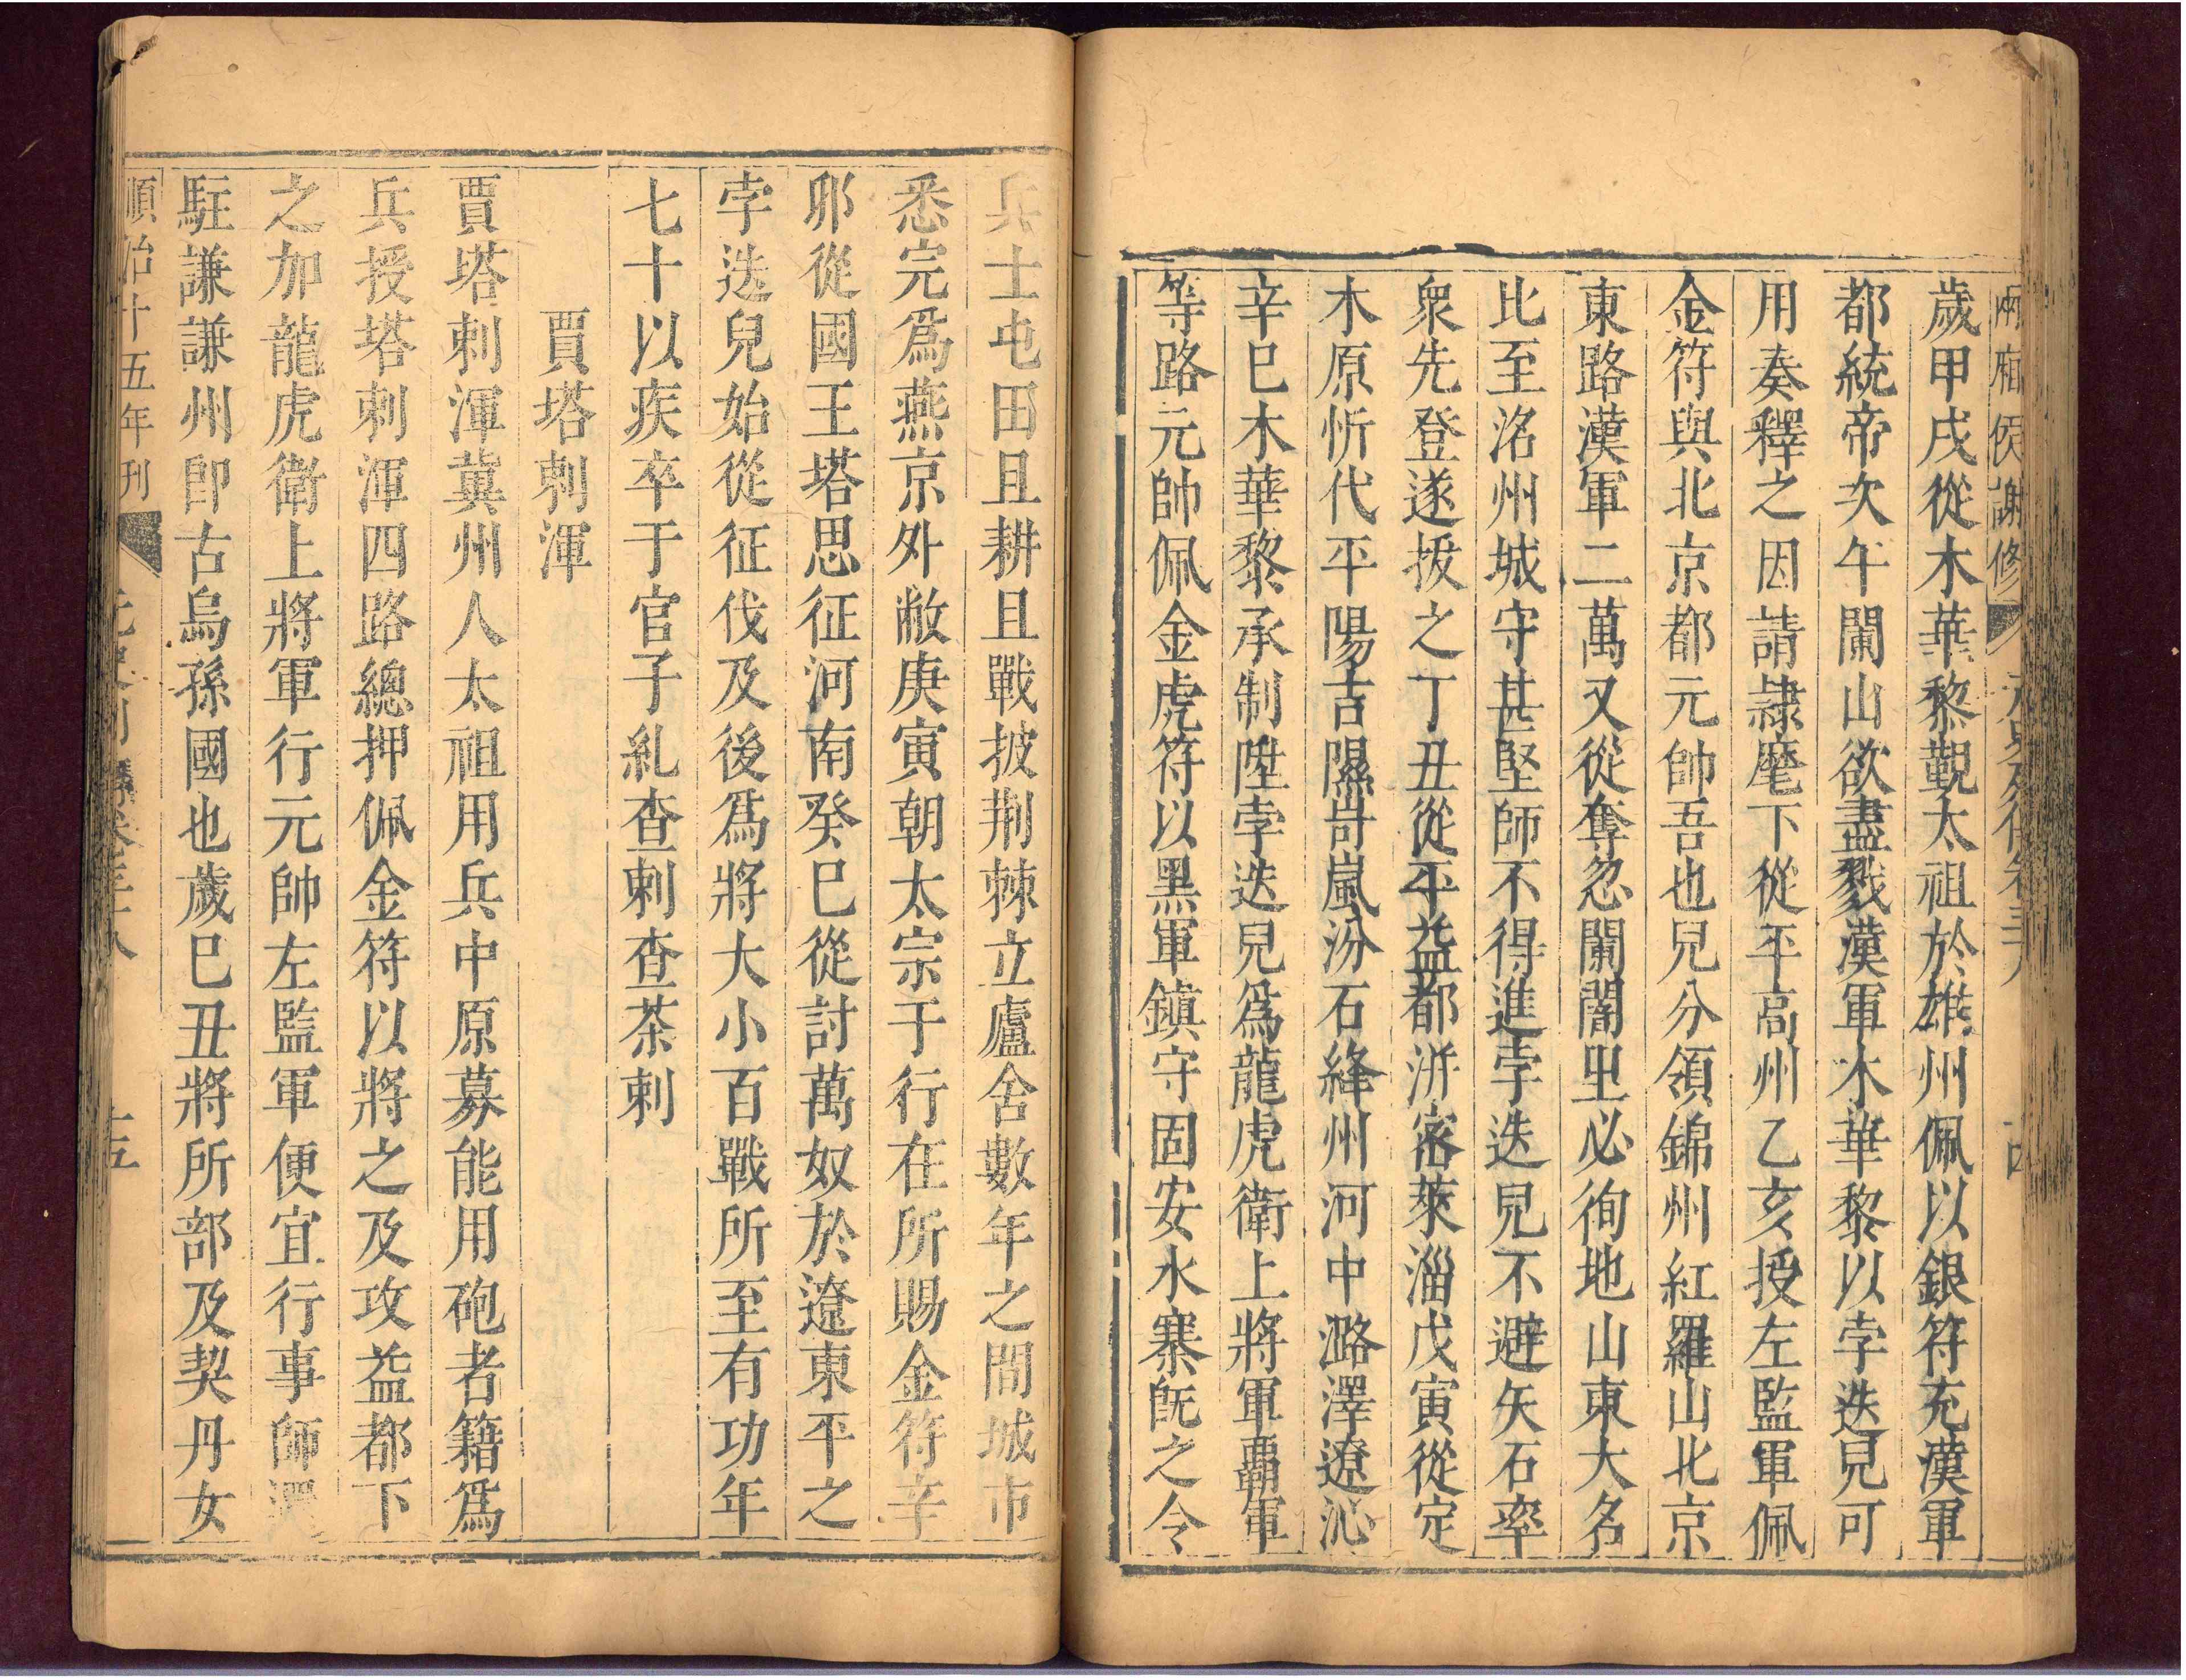 歲甲戌從木華黎覲太祖於雄州佩以銀符充漢軍
都統帝次午闌山欲盡戮漢軍木華黎以孛迭兒可
用奏釋之因請隷麾下從平高州乙亥授左監軍佩
金符與北京都元帥吾也兒分領錦州紅羅山北京
東路漢軍二萬又從奪忽闌闍里必徇地山東大名
比至洺州城守甚堅師不得進孛迭兒不避矢石率
衆先登遂拔之丁丑從平益都沂密萊淄戊寅從定
木原忻代平陽吉隰岢嵐汾石絳州河中潞澤遼沁
辛巳木華黎承制陞孛迭兒爲龍虎衛上將軍覇軍
等路元帥佩金虎符以黑軍鎮守固安水寨旣之令
兵士屯田且耕且戰披荆棘立廬舍數年之間城市
悉完爲燕京外敝庚寅朝太宗于行在所賜金符辛
卯從國王塔思征河南癸巳從討萬奴於遼東平之
孛迭兒始從征伐及後爲將大小百戰所至有功年
七十以疾卒于官子糺查剌查茶剌
賈塔剌渾
賈塔剌渾冀州人太祖用兵中原募能用砲者籍爲
兵授塔剌渾四路總押佩金符以將之及攻益都下
之加龍虎衛上將軍行元帥左監軍便宜行事師還
駐謙謙州卽古烏孫國也歲巳丑將所部及契丹女
順治十五年刊